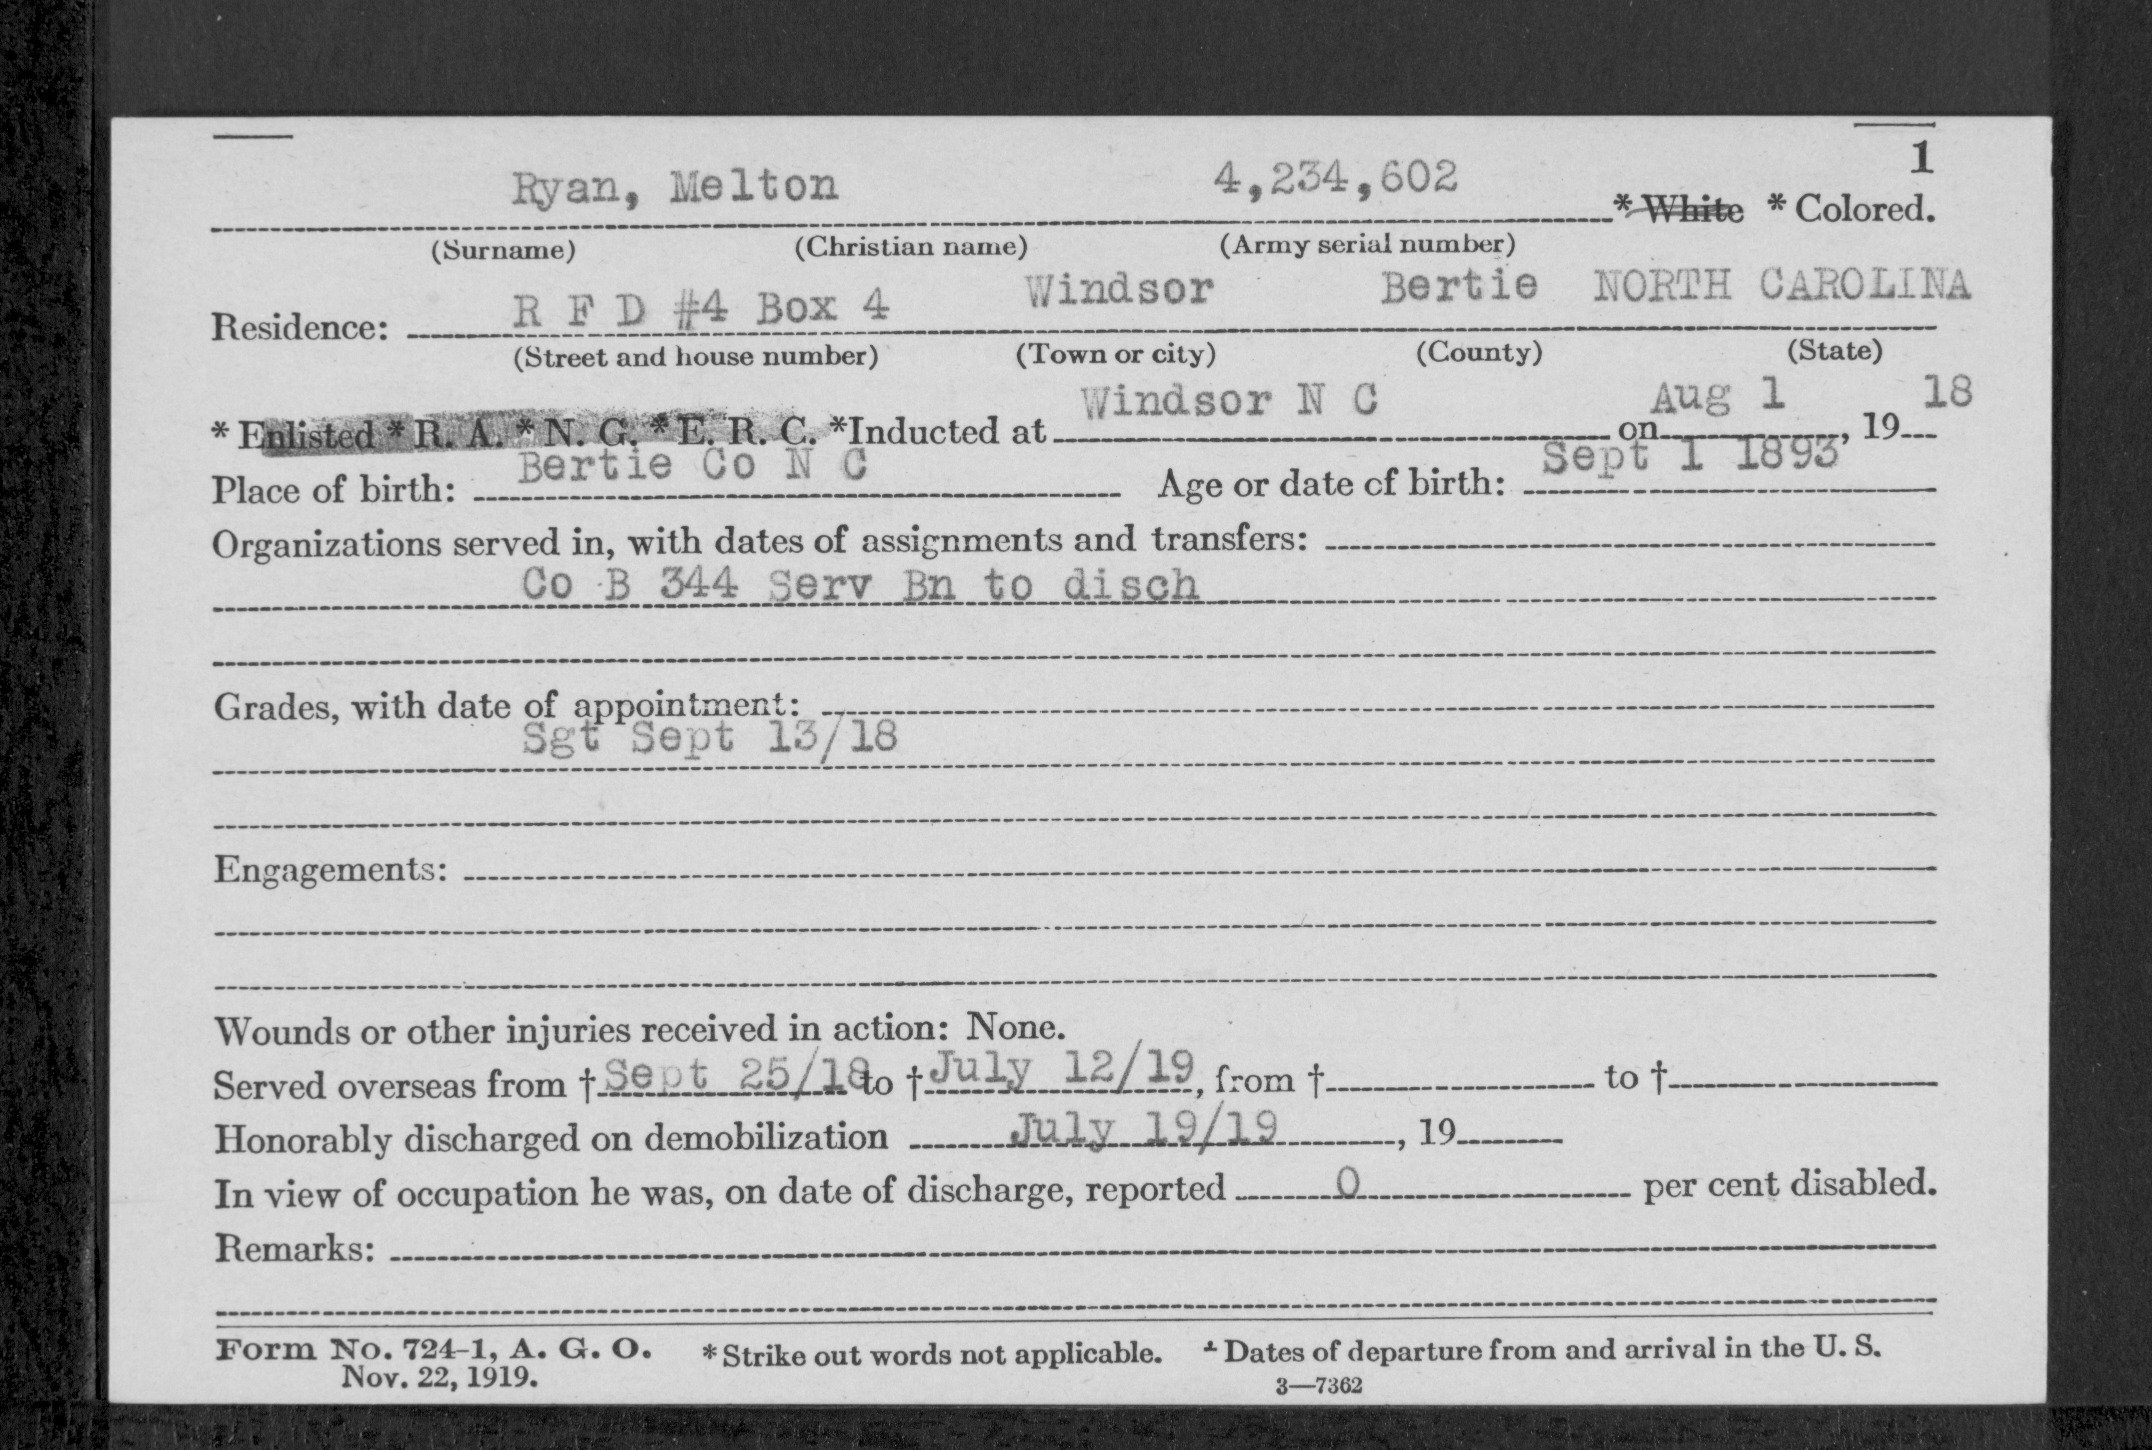 1
Ryan, Melton 4,234,602 * White * Colored.
(Surname) (Christian name) (Army serial number)
Residence: R F D #4 Box 4 Windsor Bertie NORTH CAROLINA
(Street and house number) (Town or city) (County) (State)
* Enlisted * R. A. * N. G. * E. R. C. *Inducted at Windsor N C on Aug 1, 1918
Place of birth: Bertie Co N C Age or date of birth: Sept 1 1893
Organizations served in, with dates of assignments and transfers:
Co B 344 Serv Bn to disch
Grades, with date of appointment:
Sgt Sept 13/18
Engagements:
Wounds or other injuries received in action: None.
Served overseas from † Sept 25/18 to † July 12/19, from † to †
Honorably discharged on demobilization July 19/19, 19
In view of occupation he was, on date of discharge, reported 0 per cent disabled.
Remarks:
Form No. 724-1, A. G. O. * Strike out words not applicable. † Dates of departure from and arrival in the U. S.
Nov. 22, 1919. 3—7362